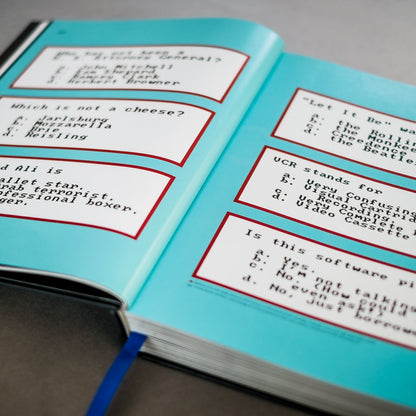 Who has not been a
U. S. Attorney General?
a. John Mitchell
b. Sam Shepard
c. Ramsey Clark
d. Herbert Browner
Which is not a cheese?
a. Jarlsburg
b. Mozzarella
c. Brie
d. Reisling
d Ali is
allet star.
rab terrorist.
rofessional boxer.
ger.
"Let It Be" w
a. the Rolling
b. the Monkee
c. Creedence
d. the Beatle
VCR stands for
a. Very Confusing
b. Visual Confus
c. a Recording
d. Very Complete
Video Cassette
Is this software pi
a. yes.
b. Yes.
c. No, not talking
(How could
even ask?)
d. No, just borrow